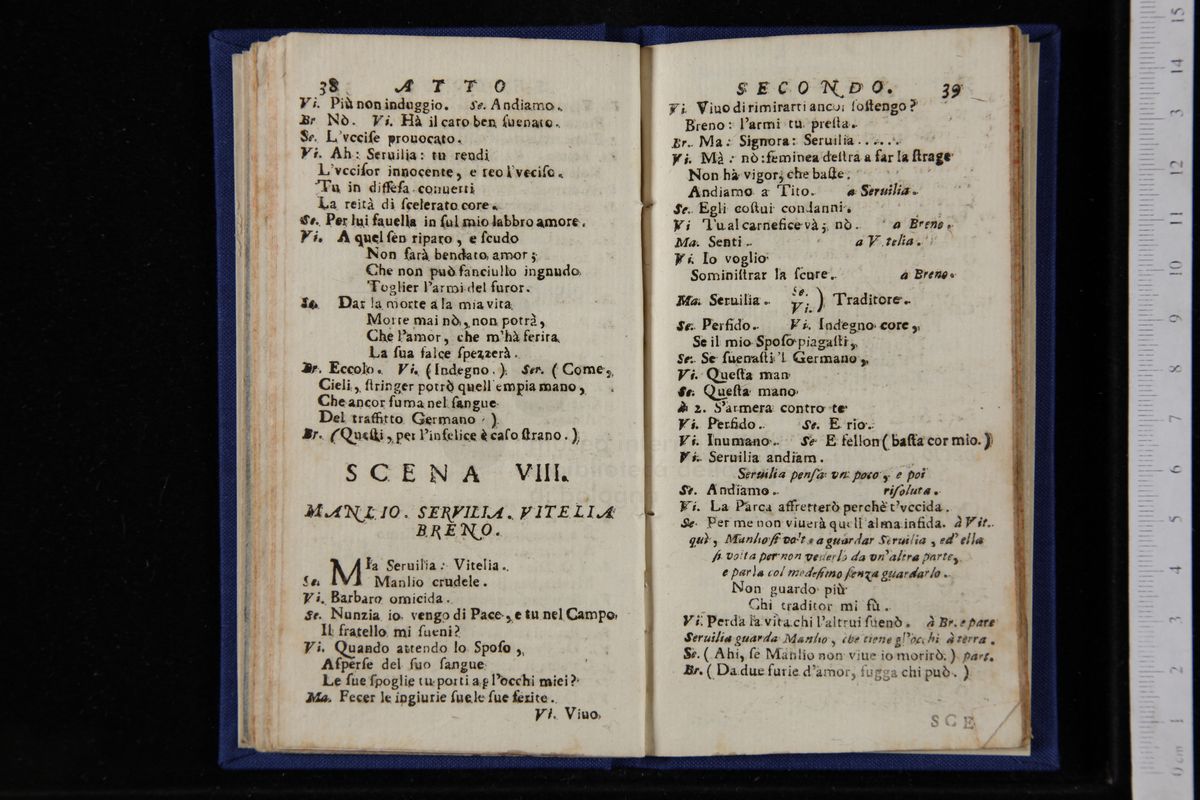 38 ATTO
Vi. Più non induggio. Se. Andiamo.
Br Nò. Vi. Hà il caro ben suenato.
Se. L'vccise prouocato.
Vi. Ah: Seruilia: tu rendi
L'vccisor innocente, e reo l'vcciso.
Tu in diffesa conuerti
La reità di scelerato core.
Se. Per lui fauella in sul mio labbro amore.
Vi. A quel sen riparo, e scudo
Non sarà bendato amor;
Che non può fanciullo ingnudo
Toglier l'armi del furor.
Se. Dar la morte a la mia vita
Morte mai nò, non potrà,
Che l'amor, che m'hà ferita
La sua falce spezzerà.
Br. Eccolo. Vi. (Indegno.) Ser. (Come,
Cieli, stringer potrò quell'empia mano,
Che ancor fuma nel sangue
Del traffitto Germano.)
Br. (Questi, per l'infelice è caso strano.)
SCENA VIII.
MANLIO. SERVILIA. VITELIA
BRENO.
MIa Seruilia: Vitelia.
Se. Manlio crudele.
Vi. Barbaro omicida.
Se. Nunzia io vengo di Pace, e tu nel Campo
Il fratello mi sueni?
Vi. Quando attendo lo Sposo,
Asperse del suo sangue
Le sue spoglie tu porti a gl'occhi miei?
Ma. Fecer le ingiurie sue le sue ferite.
Vi. Viuo
SECONDO. 39
Vi. Viuo di rimirarti ancor sostengo?
Breno: l'armi tu presta.
Br. Ma: Signora: Seruilia......
Vi. Mà: nò: feminea destra a far la strage
Non hà vigor, che baste.
Andiamo a Tito. a Seruilia.
Se. Egli costui condanni.
Vi Tu al carnefice và; nò. a Breno.
Ma. Senti. a Vitelia.
Vi. Io voglio
Somministrar la scure. a Breno.
Ma. Seruilia. Se. Vi. ) Traditore.
Se. Perfido. Vi. Indegno core,
Se il mio Sposo piagasti,
Se. Se suenasti 'l Germano,
Vi. Questa man
Se. Questa mano
à 2. S'armera contro te
Vi. Perfido. Se. E rio.
Vi. Inumano. Se E fellon (basta cor mio.)
Vi. Seruilia andiam.
Seruilia pensa vn poco, e poi
Se. Andiamo. risoluta.
Vi. La Parca affretterò perchè t'vccida.
Se. Per me non viuerà quell'alma infida. à Vit.
quì, Manlio si volta a guardar Seruilia, ed'ella
si volta per non vederlo da vn'altra parte,
e parla col medesimo senza guardarlo.
Non guardo più
Chi traditor mi fù.
Vi. Perda la vita chi l'altrui suenò. à Br. e parte
Seruilia guarda Manlio, che tiene gl'occhi à terra.
Se. (Ahi, se Manlio non viue io morirò.) part.
Br. (Da due furie d'amor, fugga chi può.)
SCE